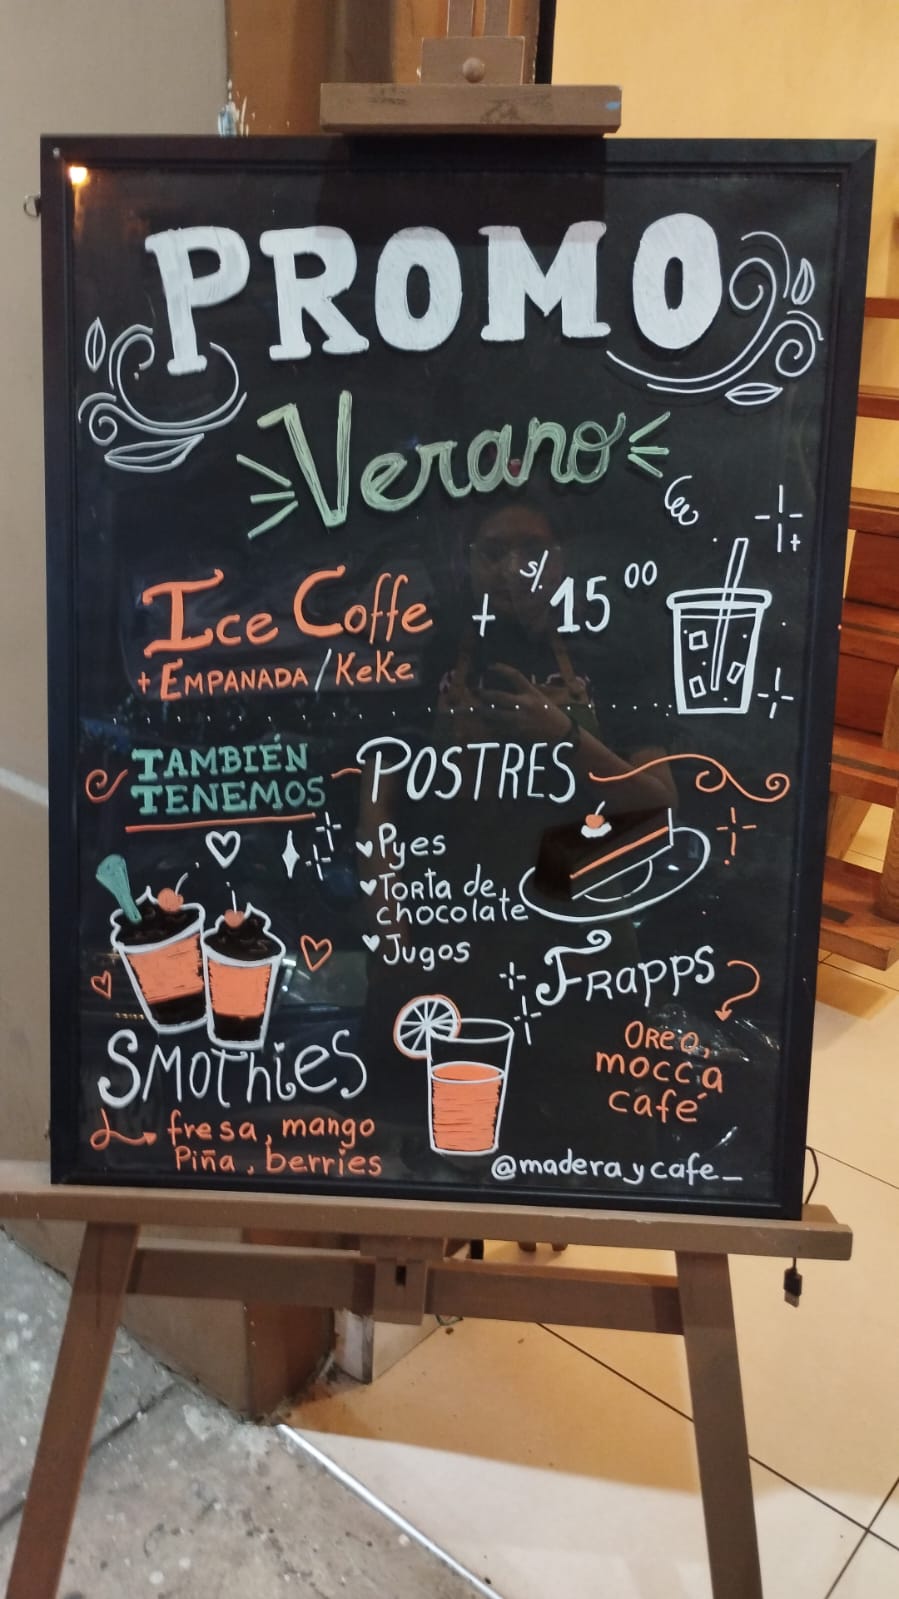 PROMO
Verano
Ice Coffe + S/. 15 00
+ EMPANADA/KeKe
TAMBIÉN
TENEMOS
POSTRES
Pyes
Torta de
chocolate
Jugos
FRAPPS
OREO,
mocca
café
SMOThiES
fresa, mango
Piña, berries
@maderaycafe_